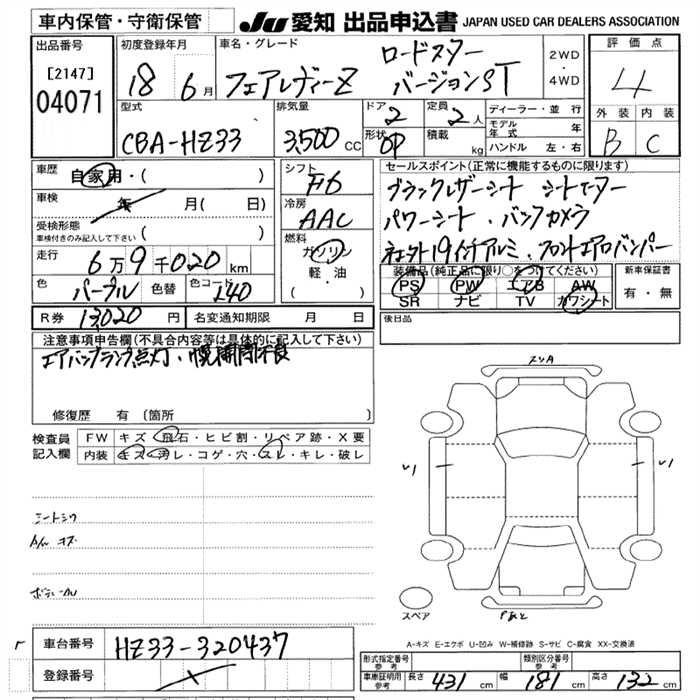 車内保管・守衛保管
JU 愛知 出品申込書 JAPAN USED CAR DEALERS ASSOCIATION
出品番号
[2147]
04071
初度登録年月
18 6月
車名・グレード
ロードスター
フェアレディーZ バージョンST
2WD
4WD
評価点
4
外装 内装
B C
型式
CBA-HZ33
排気量
3,500 CC
ドア 2
形状 OP
定員 2人
積載 kg
ディーラー・並行
モデル年式 年
ハンドル 左・右
車歴 自家用・( )
車検 年 月( 日)
受検形態
車検付きのみ記入して下さい ( )
走行
6万9千020km
色 パープル 色替 色コード L40
R券 13,020円 名変通知期限 月 日
シフト
F6
冷房
AAC
燃料
ガソリン
軽・油
( ・ )
セールスポイント(正常に機能するものに限ります)
ブラックレザーシート シートヒーター
パワーシート・バックカメラ
社外19インチアルミ・フロントエアロバンパー
装備品(純正品に限り○をつけてください)
PS PW エアB AW
SR ナビ TV カワシート
新車保証書
有・無
後日品
注意事項申告欄(不具合内容等は具体的に記入して下さい)
エアバックランプ点灯・幌開閉不良
修復歴 有 〔箇所 〕
検査員記入欄
FW キズ・飛石・ヒビ割・リペア跡・X要
内装 キズ・汚レ・コゲ・穴・スレ・キレ・破レ
シートシワ
A/W キズ
スリA
U1
U1
スペア
A-キズ E-エクボ U-凹み W-補修跡 S-サビ C-腐食 XX-交換済
車台番号 HZ33-320437
登録番号
形式指定番号 参考
類別区分番号 参考
車庫証明用 参考 長さ 431cm 幅 181cm 高さ 132cm